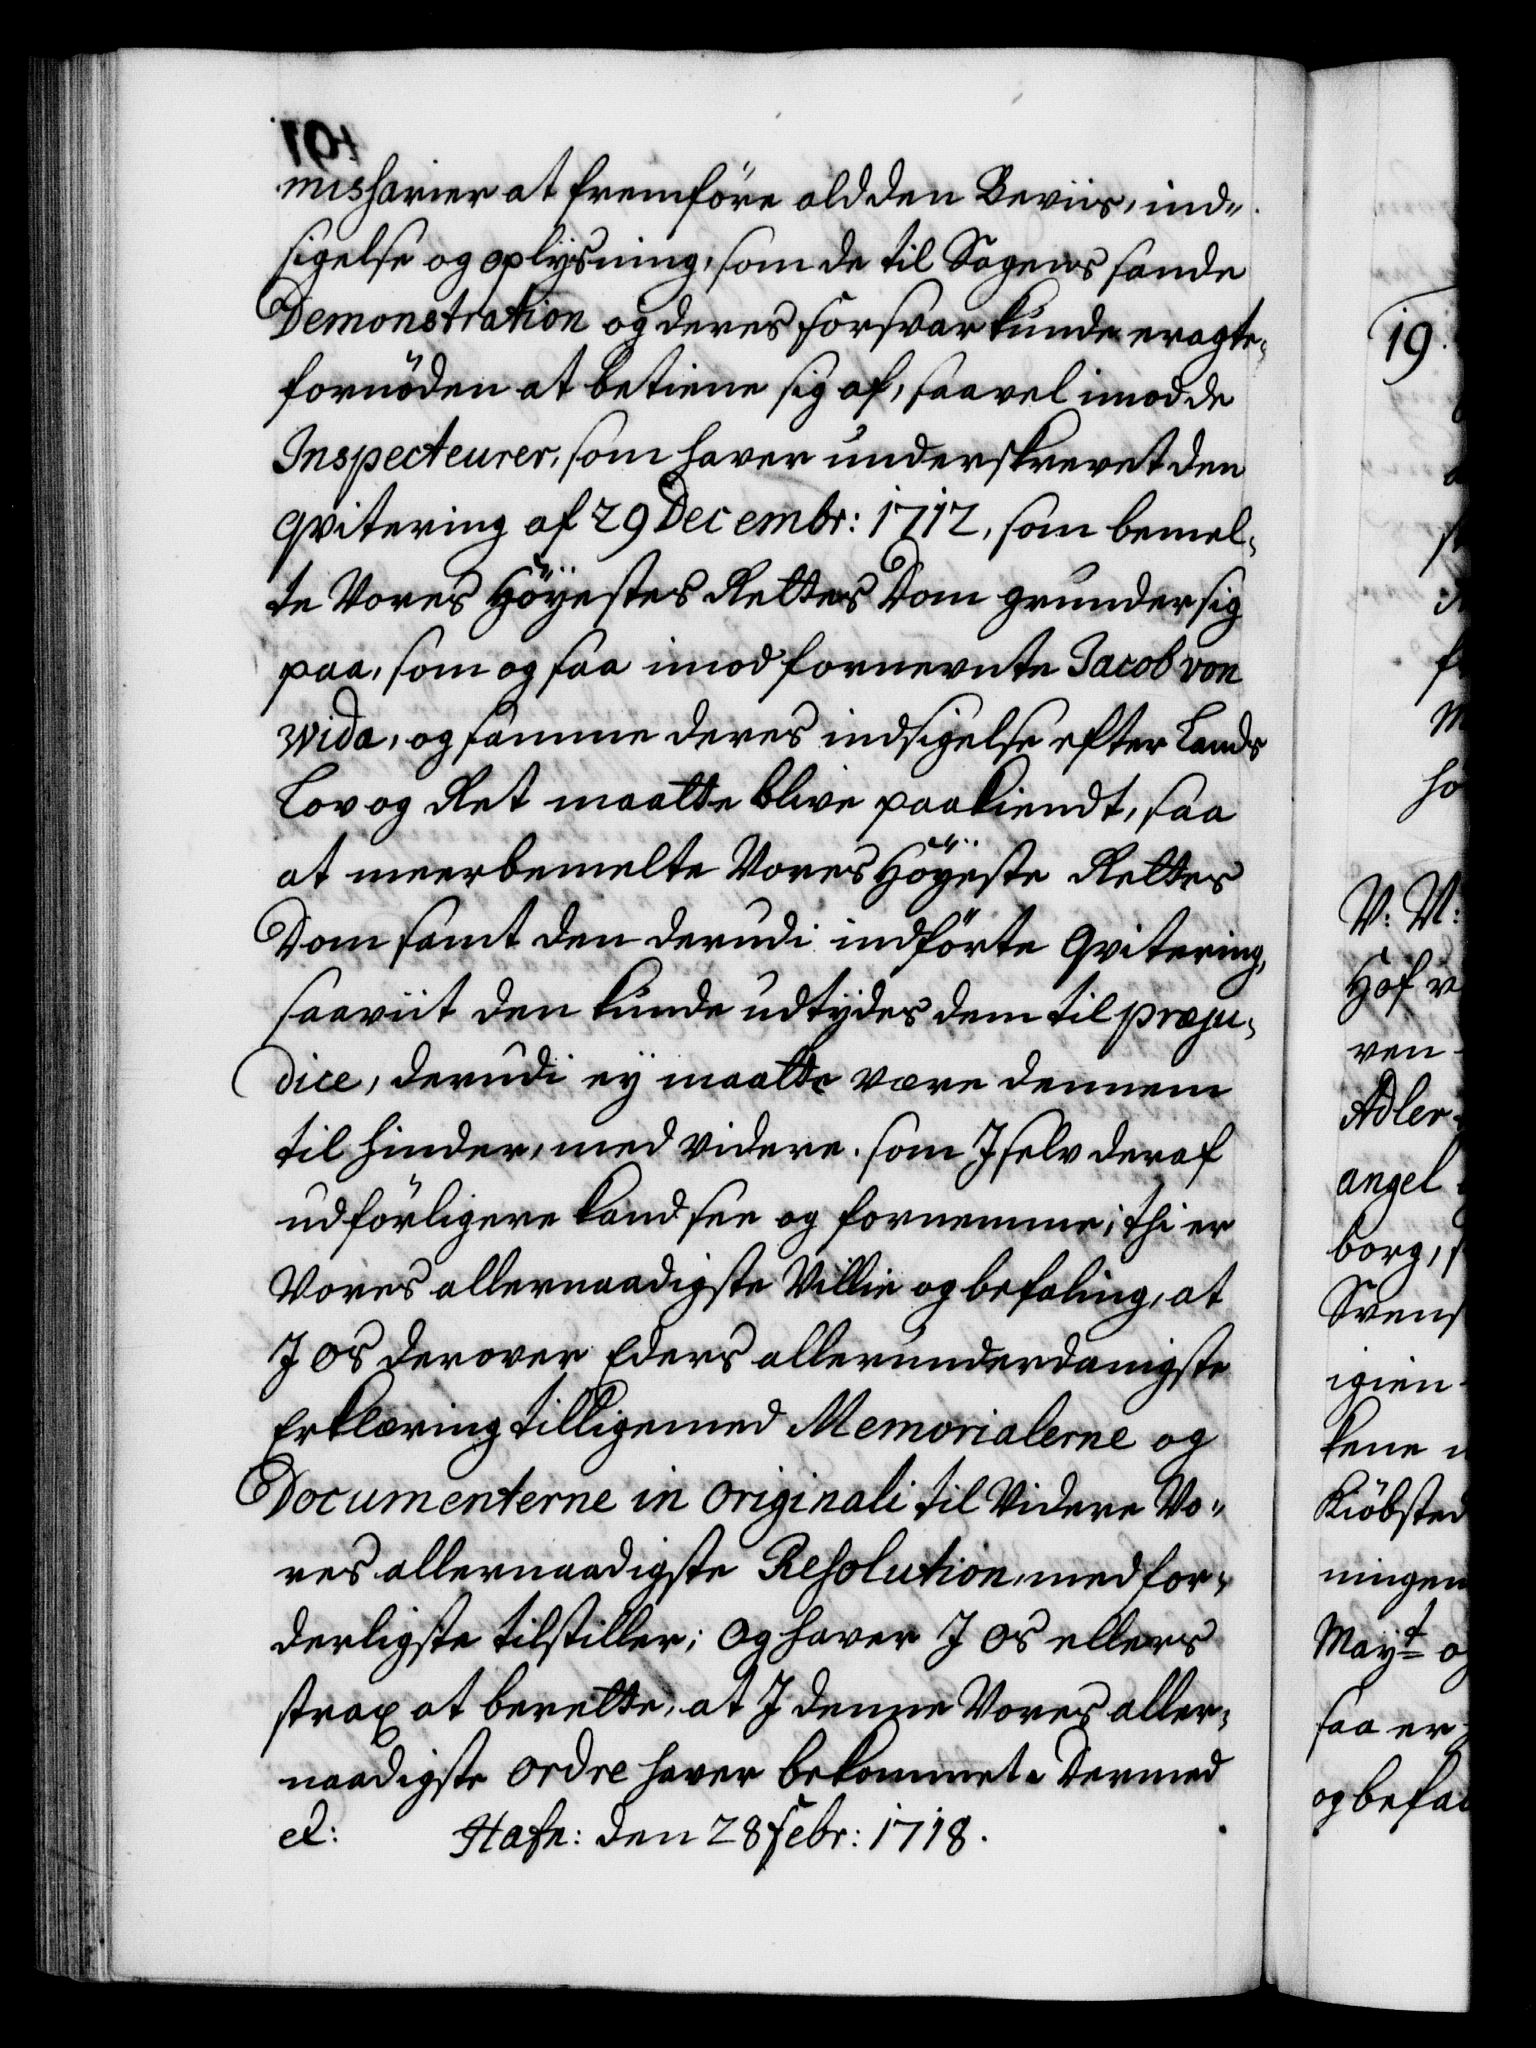 missarier at fremföre ald den Beviis, ind-
sigelse og oplysning, som de til Sagens sande
Demonstration og deres forsvar kunde eragte
fornöden at betiene sig af, saavel imod de
Inspecteurer, som haver underskrevet den
Qvitering af 29 Decembr: 1712, som bemel-
te Vores Höyestes Rettes Dom grunder sig
paa, som og saa imod fornevnte Jacob von
Wida, og samme deres indsigelse efter Lands
Lov og Ret maatte blive paakiendt, saa
at meerbemelte Vores Höyeste Rettes
Dom samt den derudi indförte Qvitering,
saaviit den kunde udtydes dem til præju-
dice, derudi ey maatte være dennem
til hinder, med videre. som J selv deraf
udförligere kand see og fornemme; thi er
Vores allernaadigste Villie og befaling, at
J os derover Eders allerunderdanigste
Erklæring tilligemed Memorialerne og
Documenterne in originali til Videre Vo-
res allernaadigste Resolution, med for-
derligste tilstiller; og haver J os ellers
strax at berette, at J denne Vores aller-
naadigste ordre haver bekommet. Dermed
el: Hafn: den 28 Febr: 1718.
19.
V: M:
Hof
ven
Adler
angel
borg,
Svens
igien
kene
Kiöbsted
ningen
Mayt
saa er
og befal